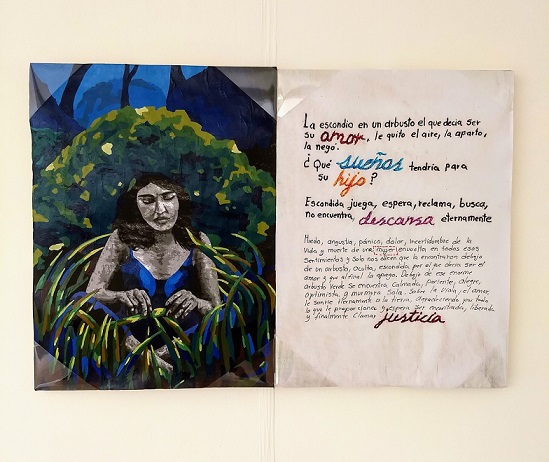 La escondio en un arbusto el que decia ser
su amor, le quito el aire, la aparto,
la nego.
¿Qué sueños tendria para
su hijo?
Escondida juega, espera, reclama, busca,
no encuentra, descansa eternamente
Miedo, angustia, pánico, dolor, incertidumbre de la
Vida y muerte de una mujer envuelta en todos esos
Sentimientos y Solo nos dicen que la encontraron debajo
de un arbusto, Oculta, escondida, por el que decia ser el
amor y que al final la apago. Debajo de ese enorme
arbusto Verde Se encuentra Calmada, paciente, Alegre,
optimista, y murmura Sola. Sobre la Vida, el amor,
le sonrie eternamente a la tierra, Agradeciendo por todo
lo que le proporciono y espera Ser encontrada, liberada
y finalmente Clamar justicia